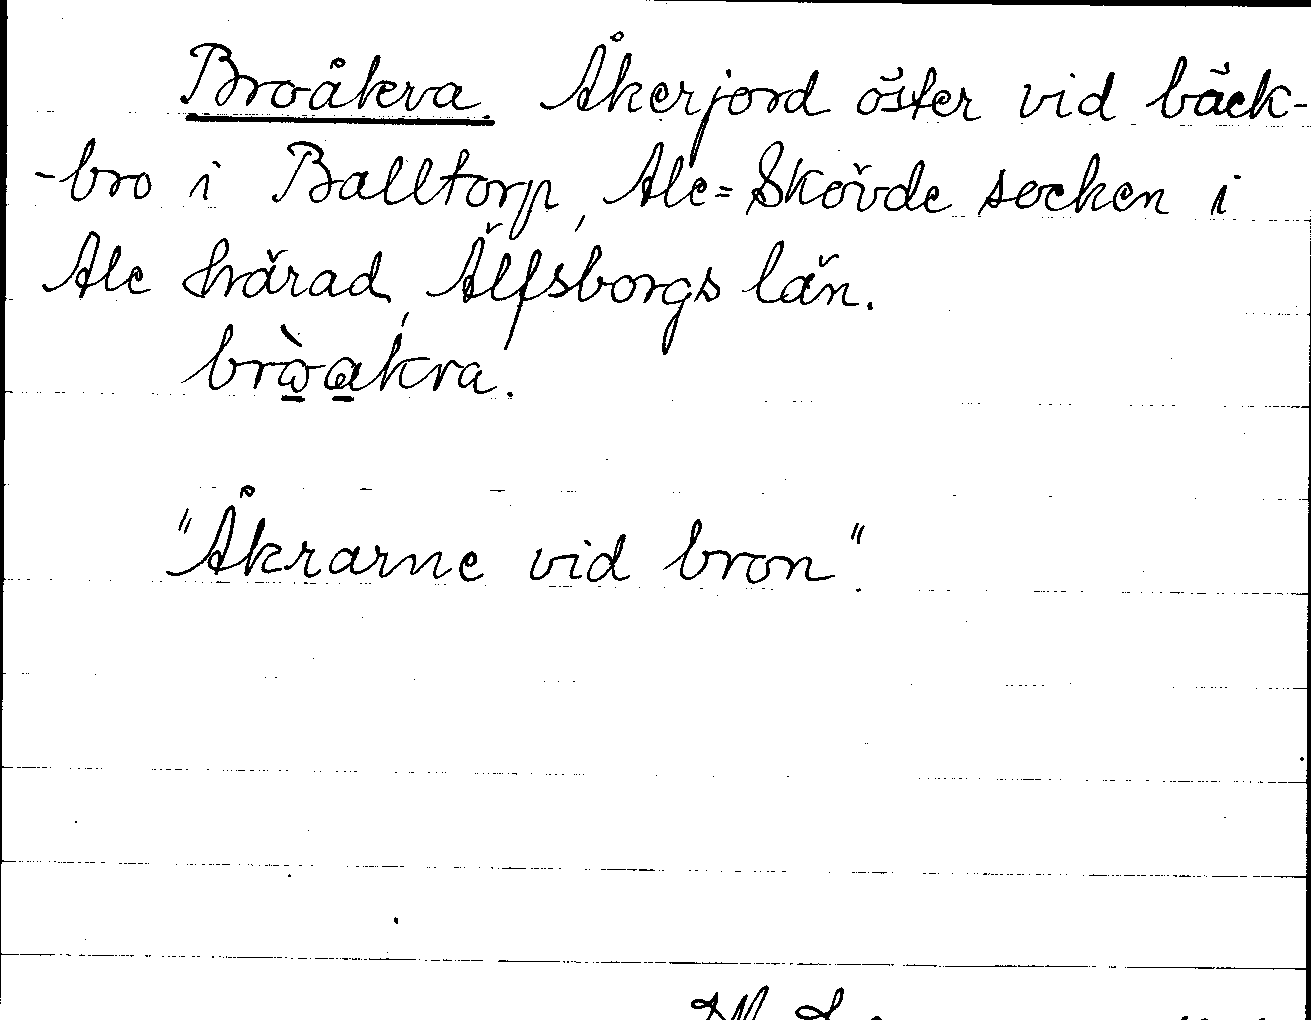 Broåkra Åkerjord öster vid bäck-
-bro i Balltorp, Ale=Skövde socken i
Ale härad, Älfsborgs län.
brὼakra.
"Åkrarne vid bron".